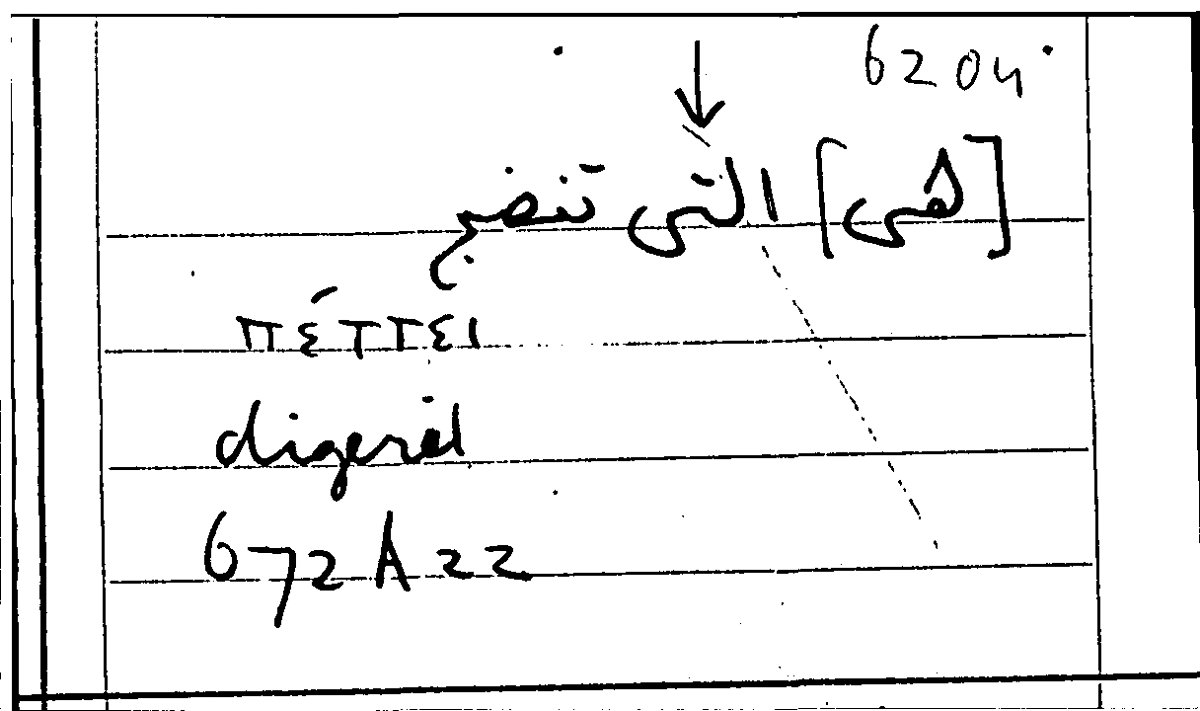 6204
[هى] التى تنضج
πέττει
digerit
672A22